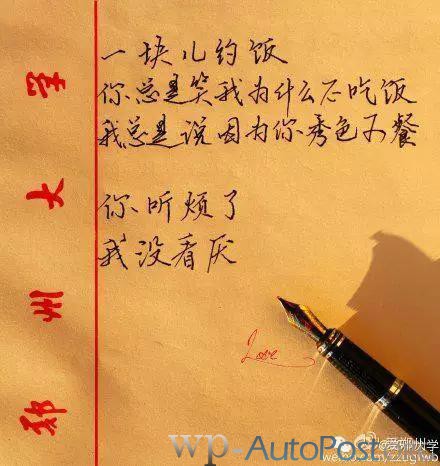 郑州大学
一块儿约饭
你总是笑我为什么不吃饭
我总是说因为你秀色可餐
你听烦了
我没看厌
Love
wp-AutoPost